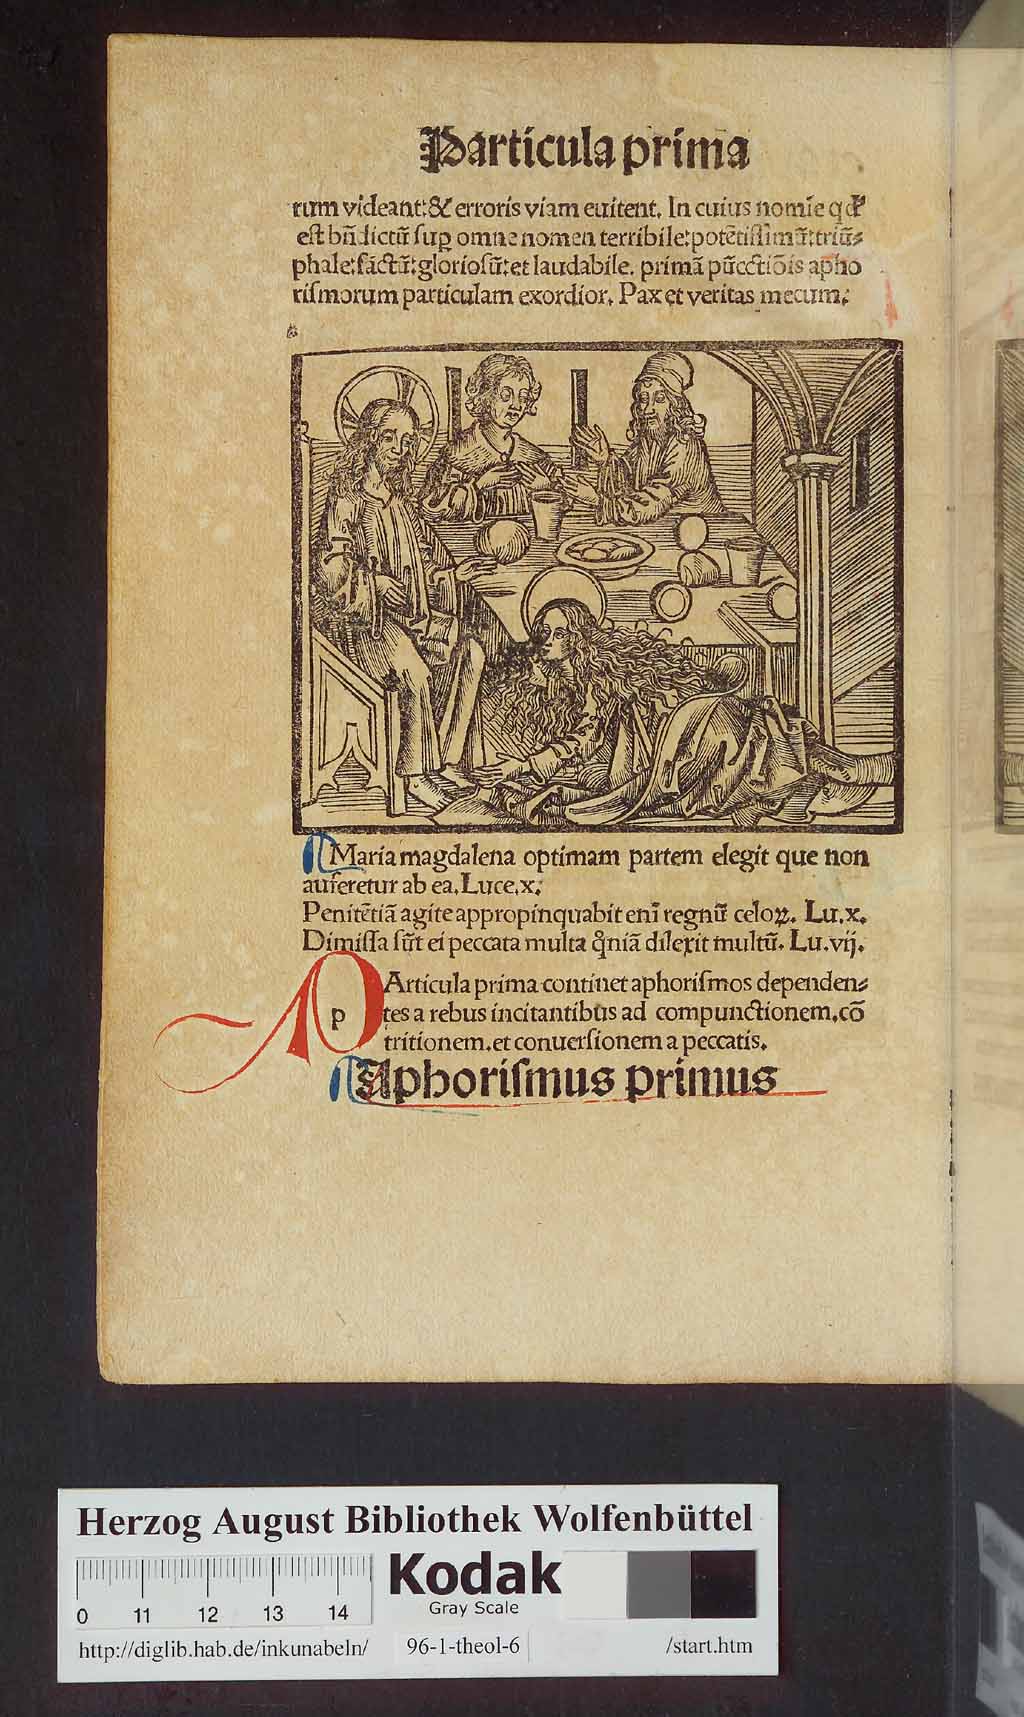 Particula prima
rum videant:& erroris viam euitent. In cuius nomīe qđ
est bn̄dictū sup omne nomen terribile:potētissimū:triū⸗
phale:sāctū:gloriosū:et laudabile. primā pūcctiōis apho
rismorum particulam exordior. Pax et veritas mecum.
Maria magdalena optimam partem elegit que non
auferetur ab ea. Luce.x.
Penitētiā agite appropinquabit enī regnū celoꝝ. Lu.x.
Dimissa sūt ei peccata multa qm̄iā dilexit multū. Lu.vij.
PArticula prima continet aphorismos dependen⸗
tes a rebus incitantibus ad compunctionem.cō
tritionem.et conuersionem a peccatis.
Aphorismus primus
Herzog August Bibliothek Wolfenbüttel
Kodak
Gray Scale
0 11 12 13 14
http://diglib.hab.de/inkunabeln/ 96-1-theol-6 /start.htm